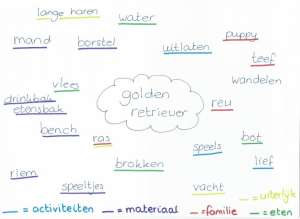 lange haren
water
puppy
mand
borstel
uitlaten
teef
vlees
wandelen
drinkbak
etensbak
golden
retriever
reu
bench
ras
bot
speels
brokken
lief
riem
speeltjes
vacht
= uiterlijk
= activiteiten
= materiaal
= familie
= eten